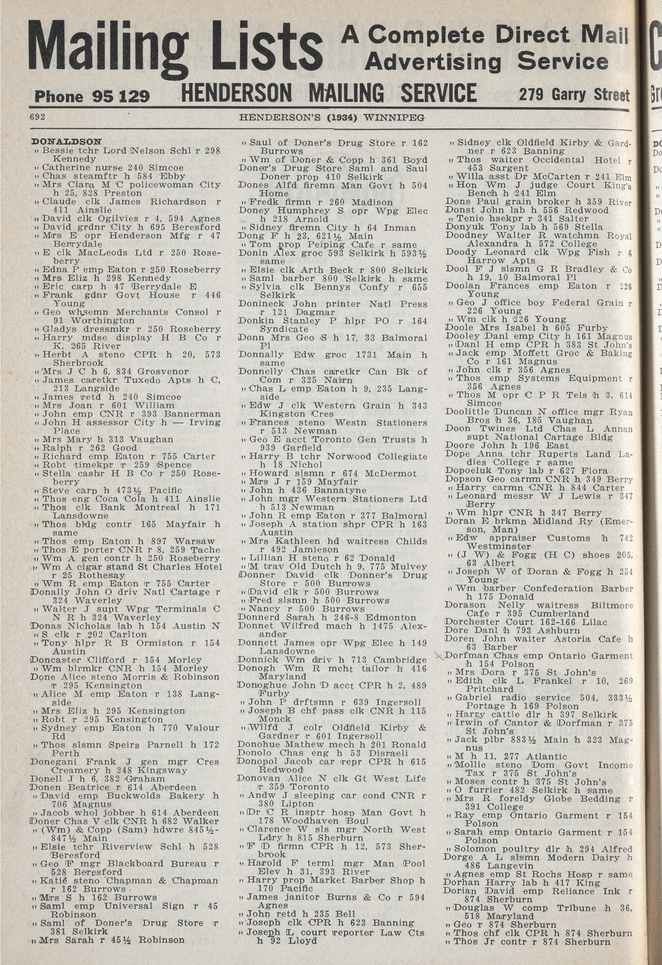 Mailing Lists A Complete Direct Mail
Advertising Service
Phone 95 129 HENDERSON MAILING SERVICE 279 Garry Street
692 HENDERSON'S (1934) WINNIPEG
DONALDSON
" Bessie tchr Lord Nelson Schl r 298
Kennedy
" Catherine nurse 240 Simcoe
" Chas steamftr h 584 Ebby
" Mrs Clara M C policewoman City
h 25, 828 Preston
" Claude clk James Richardson r
411 Ainslie
" David clk Ogilvies r 4, 594 Agnes
" David grdnr City h 695 Beresford
" Mrs E opr Henderson Mfg r 47
Berrydale
" E clk MacLeods Ltd r 250 Rose-
berry
" Edna P emp Eaton r 250 Roseberry
" Mrs Eliz r 298 Kennedy
" Eric carp h 47 Berrydale E
" Frank gdnr Govt House r 446
Young
" Geo whsemn Merchants Consol r
91 Worthington
" Gladys dressmkr r 250 Roseberry
" Harry mdse display H B Co r
K, 265 River
" Herbt A steno CPR h 20, 573
Sherbrook
" Mrs J C h 6, 834 Grosvenor
" James caretkr Tuxedo Apts h C,
213 Langside
" James retd h 240 Simcoe
" Mrs Joan r 601 William
" John emp CNR r 393 Bannerman
" John H assessor City h — Irving
Place
" Mrs Mary h 313 Vaughan
" Ralph r 262 Good
" Richard emp Eaton r 755 Carter
" Robt timekpr r 259 Spence
" Stella cashr H B Co r 250 Rose-
berry
" Steve carp h 473½ Pacific
" Thos eng Coca Cola h 411 Ainslie
" Thos clk Bank Montreal h 171
Lansdowne
" Thos bldg contr 165 Mayfair h
same
" Thos emp Eaton h 897 Warsaw
" Thos E porter CNR r 8, 259 Tache
" Wm A gen contr h 250 Roseberry
" Wm A cigar stand St Charles Hotel
r 25 Rothesay
" Wm R emp Eaton r 755 Carter
Donally John O driv Natl Cartage r
324 Waverley
" Walter J supt Wpg Terminals C
N R h 324 Waverley
Donas Nicholas lab h 154 Austin N
" S clk r 202 Carlton
" Tony hlpr R B Ormiston r 154
Austin
Doncaster Clifford r 154 Morley
" Wm blrmkr CNR h 154 Morley
Done Alice steno Morris & Robinson
r 295 Kensington
" Alice M emp Eaton r 138 Lang-
side
" Mrs Eliz h 295 Kensington
" Robt r 295 Kensington
" Sydney emp Eaton h 770 Valour
Rd
" Thos slsmn Speirs Parnell h 172
Perth
Donegani Frank J gen mgr Cres
Creamery h 248 Kingsway
Donell J h 6, 382 Graham
Donen Beatrice r 614 Aberdeen
" David emp Buckwolds Bakery h
706 Magnus
" Jacob whol jobber h 614 Aberdeen
Doner Chas V clk CNR h 682 Walker
" (Wm) & Copp (Sam) hdwre 845½-
847½ Main
" Elsie tchr Riverview Schl h 528
Beresford
" Geo F mgr Blackboard Bureau r
528 Beresford
" Katie steno Chapman & Chapman
r 162 Burrows
" Mrs S h 162 Burrows
" Saml emp Universal Sign r 45
Robinson
" Saml of Doner's Drug Store r
381 Selkirk
" Mrs Sarah r 45½ Robinson
" Saul of Doner's Drug Store r 162
Burrows
" Wm of Doner & Copp h 361 Boyd
Doner's Drug Store Saml and Saul
Doner prop 410 Selkirk
Dones Alfd firemn Man Govt h 504
Home
" Fredk firmn r 260 Madison
Doney Humphrey S opr Wpg Elec
h 218 Arnold
" Sidney firemn City h 64 Inman
Dong F h 23, 621½ Main
" Tom prop Peiping Cafe r same
Donin Alex groc 593 Selkirk h 593½
same
" Elsie clk Arth Beck r 800 Selkirk
" Saml barber 800 Selkirk h same
" Sylvia clk Bennys Confy r 655
Selkirk
Donineck John printer Natl Press
r 121 Dagmar
Donkin Stanley P hlpr PO r 164
Syndicate
Donn Mrs Geo S h 17, 33 Balmoral
Pl
Donnally Edw groc 1731 Main h
same
Donnelly Chas caretkr Can Bk of
Com r 325 Nairn
" Chas L emp Eaton h 9, 235 Lang-
side
" Edw J clk Western Grain h 343
Kingston Cres
" Frances steno Westn Stationers
r 513 Newman
" Geo E acct Toronto Gen Trusts h
939 Garfield
" Harry B tchr Norwood Collegiate
h 18 Nichol
" Howard slsmn r 674 McDermot
" Mrs J r 159 Mayfair
" John h 436 Bannatyne
" John mgr Western Stationers Ltd
h 513 Newman
" John R emp Eaton r 377 Balmoral
" Joseph A station shpr CPR h 163
Austin
" Mrs Kathleen hd waitress Childs
r 492 Jamieson
" Lillian H steno r 62 Donald
" M trav Old Dutch h 9, 775 Mulvey
Donner David clk Donner's Drug
Store r 500 Burrows
" David clk r 500 Burrows
" Fred slsmn h 500 Burrows
" Nancy r 500 Burrows
Donnerd Sarah h 246-8 Edmonton
Donnet Wilfred mach h 1475 Alex-
ander
Donnett James opr Wpg Elec h 149
Lansdowne
Donnick Wm driv h 713 Cambridge
Donogh Wm R mcht tailor h 416
Maryland
Donoghue John D acct CPR h 2, 489
Furby
" John P drftsmn r 639 Ingersoll
" Joseph B chf pass clk CNR h 115
Monck
" Wilfd J colr Oldfield Kirby &
Gardner r 601 Ingersoll
Donohue Mathew mech h 201 Ronald
Donolo Chas eng h 53 Disraeli
Donopol Jacob car repr CPR h 615
Redwood
Donovan Alice N clk Gt West Life
r 359 Toronto
" Andw J sleeping car cond CNR r
380 Lipton
" Dr C R insptr hosp Man Govt h
178 Woodhaven Boul
" Clarence W sls mgr North West
Ldry h 815 Sherburn
" F D firmn CPR h 12, 573 Sher-
brook
" Harold F terml mgr Man Pool
Elev h 31, 393 River
" Harry prop Market Barber Shop h
170 Pacific
" James janitor Burns & Co r 594
Agnes
" John retd h 235 Bell
" Joseph clk CPR h 623 Banning
" Joseph L court reporter Law Cts
h 92 Lloyd
" Sidney clk Oldfield Kirby & Gard-
ner r 623 Banning
" Thos waiter Occidental Hotel r
453 Sargent
" Willa asst Dr McCarten r 241 Elm
" Hon Wm J judge Court King's
Bench h 241 Elm
Dons Paul grain broker h 359 River
Donst John lab h 556 Redwood
" Tenie hsekpr r 341 Salter
Donyuk Tony lab h 569 Stella
Doodney Walter R watchmn Royal
Alexandra h 572 College
Doody Leonard clk Wpg Fish r 6
Harrow Apts
Dool F J slsmn G R Bradley & Co
h 19, 10 Balmoral Pl
Doolan Frances emp Eaton r 226
Young
" Geo J office boy Federal Grain r
226 Young
" Wm clk h 226 Young
Doole Mrs Isabel h 605 Furby
Dooley Danl emp City h 161 Magnus
" Danl H emp CPR h 383 St John's
" Jack emp Moffett Groc & Baking
Co r 161 Magnus
" John clk r 356 Agnes
" Thos emp Systems Equipment r
356 Agnes
" Thos M opr C P R Tels h 3, 614
Simcoe
Doolittle Duncan N office mgr Ryan
Bros h 36, 185 Vaughan
Doon Twines Ltd Chas L Annan
supt National Cartage Bldg
Doore John h 196 East
Dope Anna tchr Ruperts Land La-
dies College r same
Dopoeluk Tony lab r 627 Flora
Dopson Geo carmn CNR h 349 Berry
" Harry carmn CNR h 844 Carter
" Leonard messr W J Lewis r 347
Berry
" Wm hlpr CNR h 347 Berry
Doran E brkmn Midland Ry (Emer-
son, Man)
" Edw appraiser Customs h 742
Westminster
" (J W) & Fogg (H C) shoes 205,
63 Albert
" Joseph W of Doran & Fogg h 254
Young
" Wm barber Confederation Barber
h 175 Donald
Dorason Nelly waitress Biltmore
Cafe r 395 Cumberland
Dorchester Court 162-166 Lilac
Dore Danl h 793 Ashburn
Doren John waiter Astoria Cafe h
63 Barber
Dorfman Chas emp Ontario Garment
h 154 Polson
" Mrs Dora r 375 St John's
" Edith clk L Frankel r 10, 269
Pritchard
" Gabriel radio service 504, 333½
Portage h 169 Polson
" Harry cattle dlr h 397 Selkirk
" Irwin of Cantor & Dorfman r 375
St John's
" Jack plbr 883½ Main h 323 Mag-
nus
" M h 11, 277 Atlantic
" Mollie steno Dom Govt Income
Tax r 375 St John's
" Moses contr h 375 St John's
" O furrier 482 Selkirk h same
" Mrs R foreldy Globe Bedding r
391 College
" Ray emp Ontario Garment r 154
Polson
" Sarah emp Ontario Garment r 154
Polson
" Solomon poultry dlr h 294 Alfred
Dorge A L slsmn Modern Dairy h
486 Langevin
" Agnes emp St Rochs Hosp r same
Dorhan Harry lab h 417 King
Dorian David emp Reliance Ink r
874 Sherburn
" Douglas W comp Tribune h 36,
518 Maryland
" Geo r 874 Sherburn
" Thos chf clk CPR h 874 Sherburn
" Thos Jr contr r 874 Sherburn